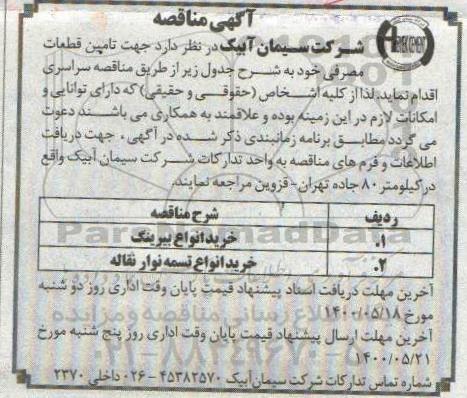 آگهی مناقصه
شرکت سیمان آبیک در نظر دارد جهت تامین قطعات
مصرفی خود به شرح جدول زیر از طریق مناقصه سراسری
اقدام نماید. لذا از کلیه اشخاص (حقوقی و حقیقی) که دارای توانایی و
امکانات لازم در این زمینه بوده و علاقمند به همکاری می باشند دعوت
می گردد مطابق برنامه زمانبندی ذکر شده در آگهی، جهت دریافت
اطلاعات و فرم های مناقصه به واحد تدارکات شرکت سیمان آبیک واقع
در کیلومتر ۸۰ جاده تهران - قزوین مراجعه نمایند.
ردیف شرح مناقصه
۱. خرید انواع بیرینگ
۲. خرید انواع تسمه نوار نقاله
آخرین مهلت دریافت اسناد پیشنهاد قیمت پایان وقت اداری روز دو شنبه
مورخ ۱۴۰۰/۰۵/۱۸
آخرین مهلت ارسال پیشنهاد قیمت پایان وقت اداری روز پنج شنبه مورخ
۱۴۰۰/۰۵/۲۱
شماره تماس تدارکات شرکت سیمان آبیک ۴۵۳۸۲۵۷۰ - ۰۲۶ داخلی ۲۳۷۰